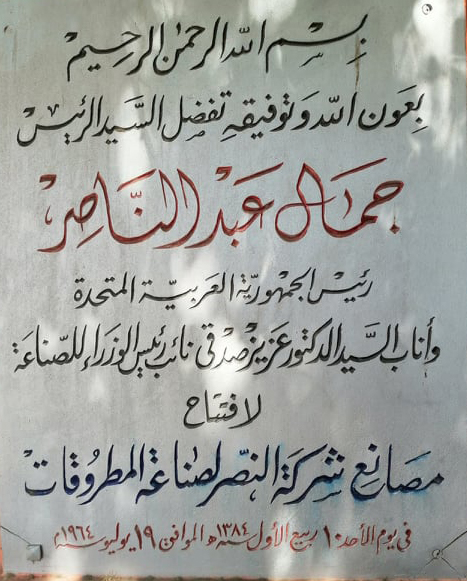 بسم الله الرحمن الرحيم
بعون الله وتوفيقه تفضل السيد الرئيس
جمال عبد الناصر
رئيس الجمهورية العربية المتحدة
وأناب السيد الدكتور عزيز صدقى نائب رئيس الوزراء للصناعة
لافتتاح
مصانع شركة النصر لصناعة المطروقات
فى يوم الأحد ١٠ ربيع الأول سنة ١٣٨٤ه‍ الموافق ١٩ يوليو سنة ١٩٦٤م